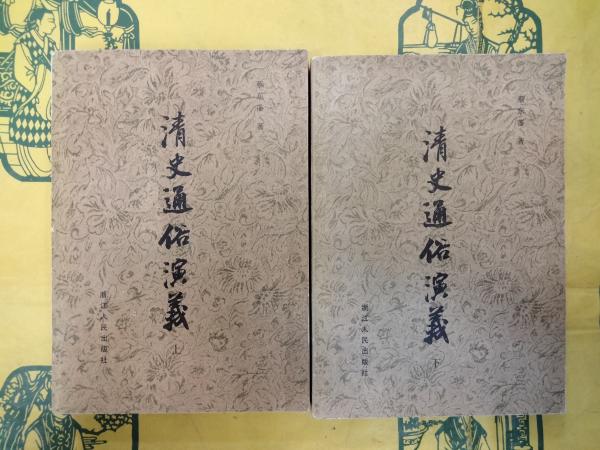 蔡东藩 著
清史通俗演義
上
浙江人民出版社
蔡东藩 著
清史通俗演義
下
浙江人民出版社